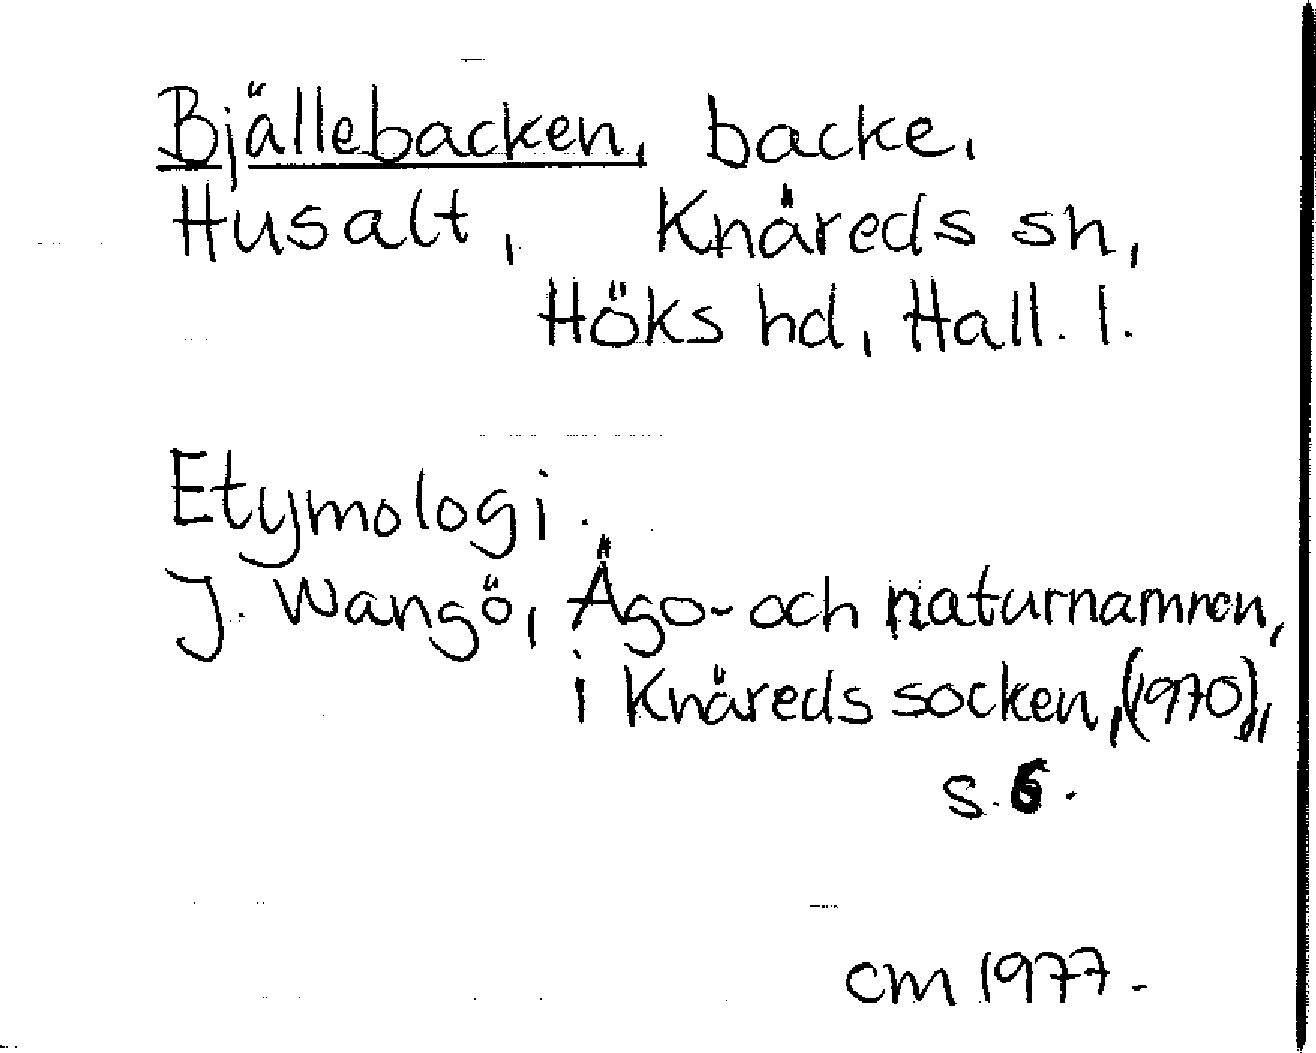 Bjällebacken, backe,
Husalt, Knäreds sn,
Höks hd, Hall. l.
Etymologi.
J. Wangö, Ägo- och naturnamnen,
i Knäreds socken, (1970),
s. 6.
cm 1977.